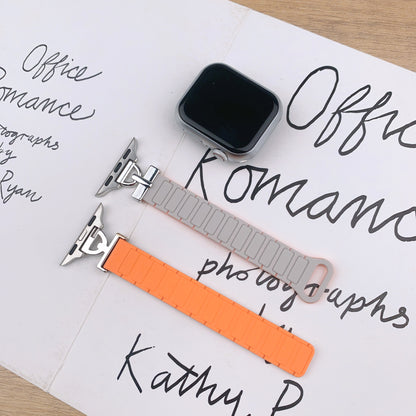 Office
Romance
otographs
by
Ryan
Office
Romance
photographs
Kathy R